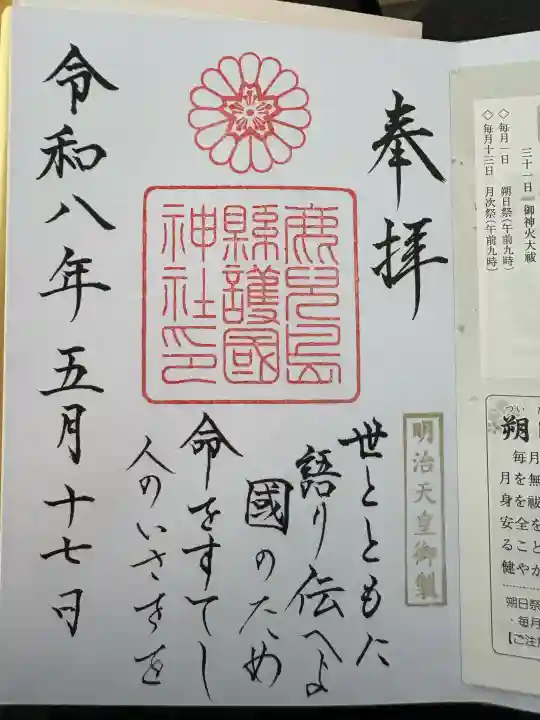 三十一日 御神火大祓
◇ 毎月一日 朔日祭(午前九時)
◇ 毎月十三日 月次祭(午前九時)
朔
毎月
月を無
身を祓
安全を
ること
健やか
朔日祭
・毎月
奉拝
鹿児島
縣護國
神社印
明治天皇御製
世とともに
語り伝へよ
國のため
命をすてし
人のいさをを
令和八年五月十七日